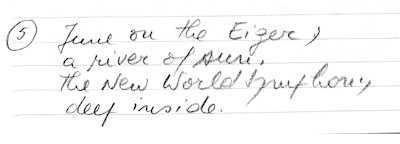 ⑤ June on the Eiger;
a river of sun,
the New World Symphony
deep inside.